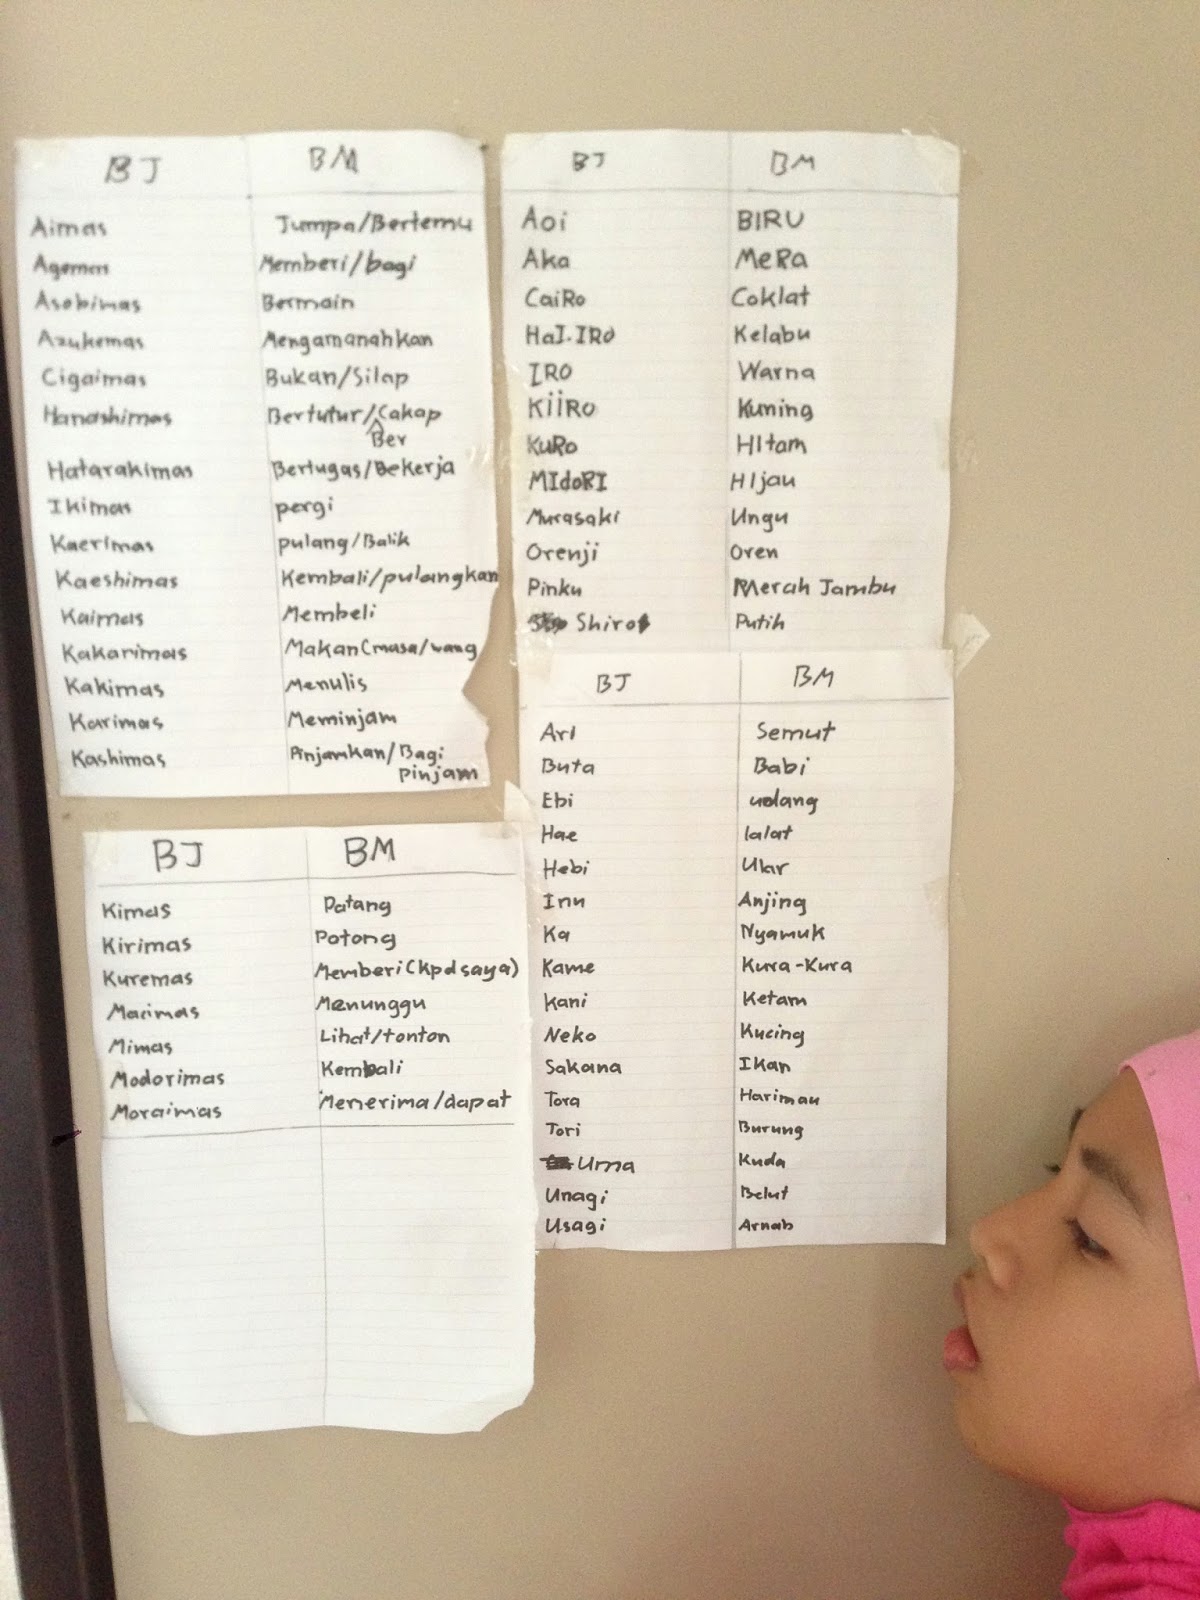 BJ BM
Aimas Jumpa/Bertemu
Agemas Memberi/bagi
Asobimas Bermain
Azukemas Mengamanahkan
Cigaimas Bukan/Silap
Hanashimas Bertutur/Cakap
Ber
Hatarakimas Bertugas/Bekerja
Ikimas pergi
Kaerimas pulang/Balik
Kaeshimas Kembali/pulangkan
Kaimas Membeli
Kakarimas Makan(masa/wang
Kakimas Menulis
Karimas Meminjam
Kashimas Pinjamkan/Bagi
pinjam
BJ BM
Kimas Datang
Kirimas Potong
Kuremas Memberi(kpd saya)
Macimas Menunggu
Mimas Lihat/tonton
Modorimas Kembali
Moraimas Menerima/dapat
BJ BM
Aoi BIRU
Aka MeRa
CaiRo Coklat
HaI.IRO Kelabu
IRO Warna
KiiRO Kuning
KuRo HItam
MIdoRI HIjau
Murasaki Ungu
Orenji Oren
Pinku Merah Jambu
Shiro Putih
BJ BM
ArI Semut
Buta Babi
Ebi udang
Hae lalat
Hebi Ular
Inu Anjing
Ka Nyamuk
Kame Kura-Kura
Kani Ketam
Neko Kucing
Sakana Ikan
Tora Harimau
Tori Burung
Uma Kuda
Unagi Belut
Usagi Arnab